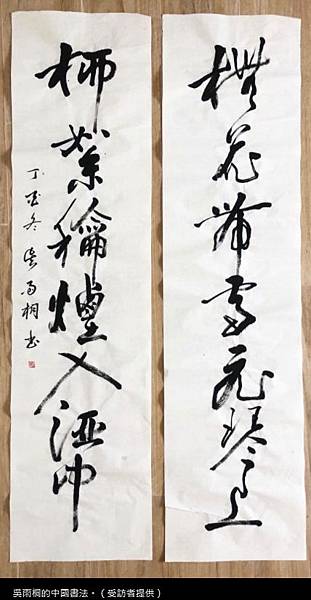 楳花帶雪飛琴上
柳葉龢煙入酒中
丁酉冬吳雨桐书
吳雨桐的中國書法。（受訪者提供）